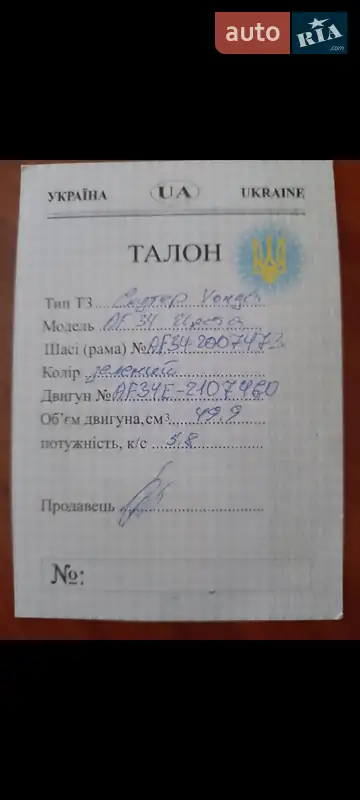 auto RIA.com
УКРАЇНА UA UKRAINE
ТАЛОН
Тип ТЗ Скутер Хонда
Модель AF 34
Шасі (рама) № AF34 2007473
Колір зелений
Двигун № AF34E-2107460
Об'єм двигуна,см3 49.9
потужність, к/с 5.8
Продавець
№: